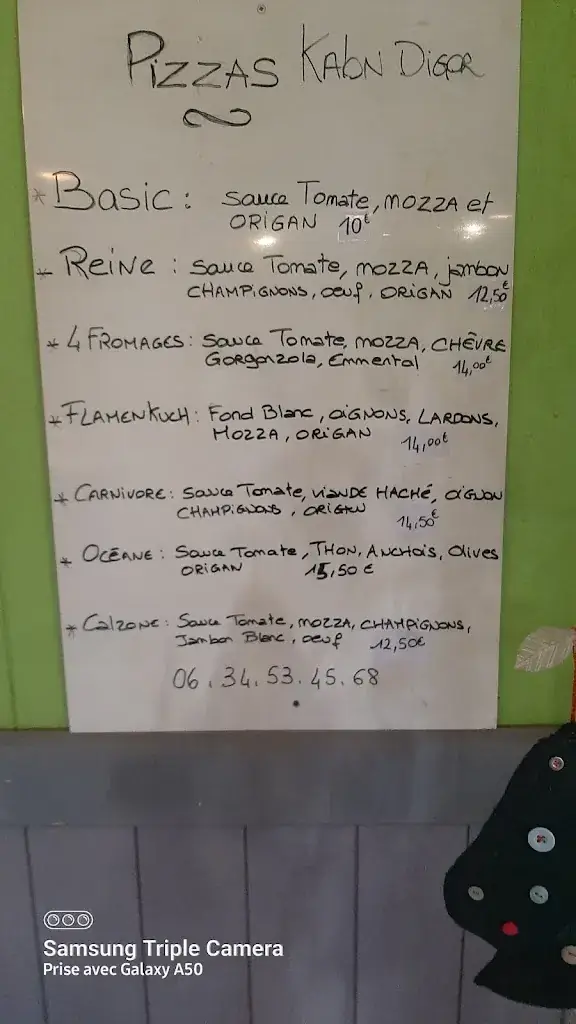 Pizzas Kalon Digor
* Basic : Sauce Tomate, mozza et
ORIGAN 10€
* Reine : Sauce Tomate, mozza, jambon
CHAMPIGNONS, oeuf, ORIGAN 12,50€
* 4 FROMAGES : Sauce Tomate, mozza, CHÈVRE
Gorgonzola, Emmental 14,00€
* FLAMENKUCH : Fond Blanc, OIGNONS, LARDONS,
MOZZA, ORIGAN 14,00€
* CARNIVORE : Sauce Tomate, VIANDE HACHÉ, OIGNON
CHAMPIGNONS, ORIGAN 14,50€
* OCÉANE : Sauce Tomate, THON, ANCHOIS, Olives
ORIGAN 15,50 €
* Calzone : Sauce Tomate, mozza, CHAMPIGNONS,
Jambon Blanc, oeuf 12,50€
06.34.53.45.68
Samsung Triple Camera
Prise avec Galaxy A50